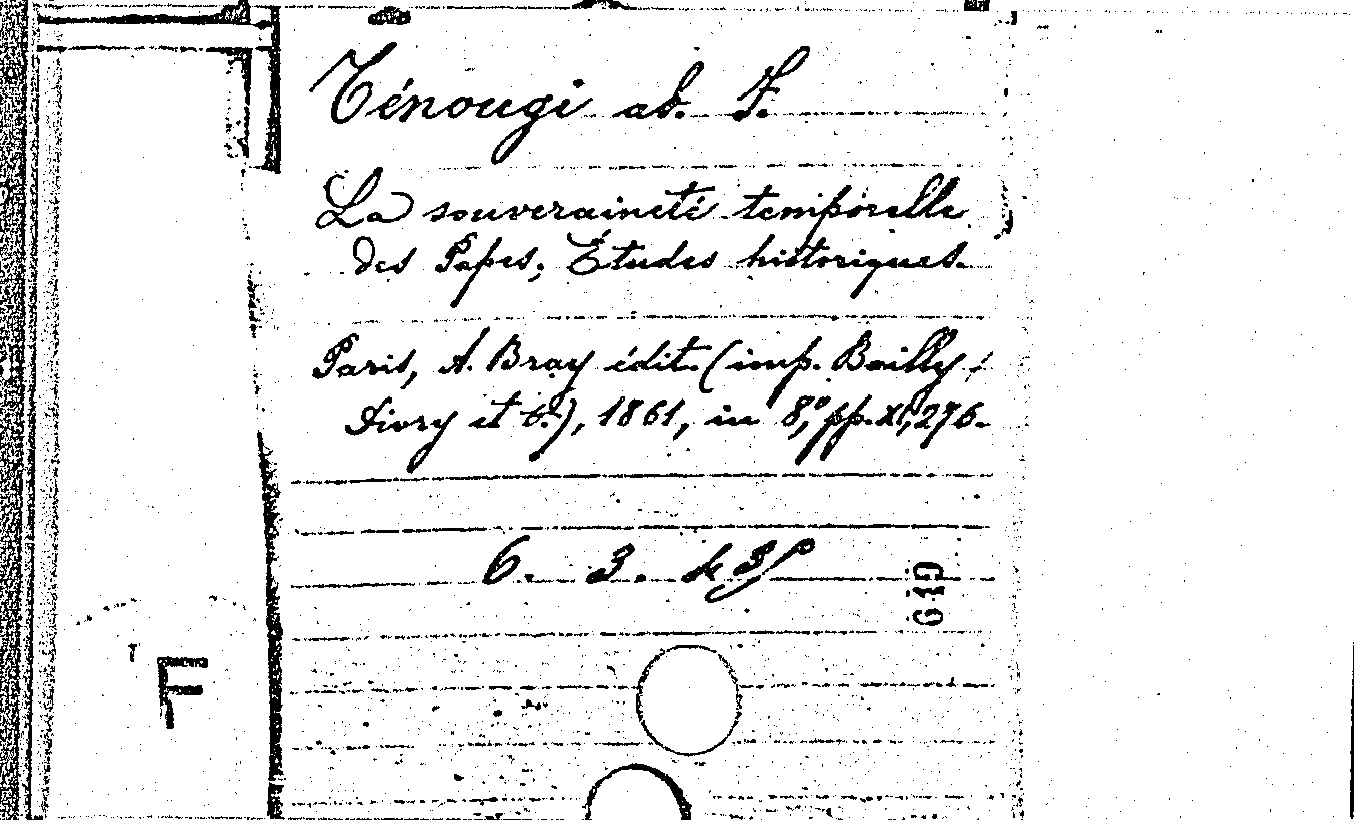 Ténougi ab. F.
La souveraineté temporelle
des Papes; Études historiques.
Paris, A. Bray édit. (imp. Bailly,
Divry et C.), 1861, in 8°, pp. XI, 276.
6. 3.
619
F